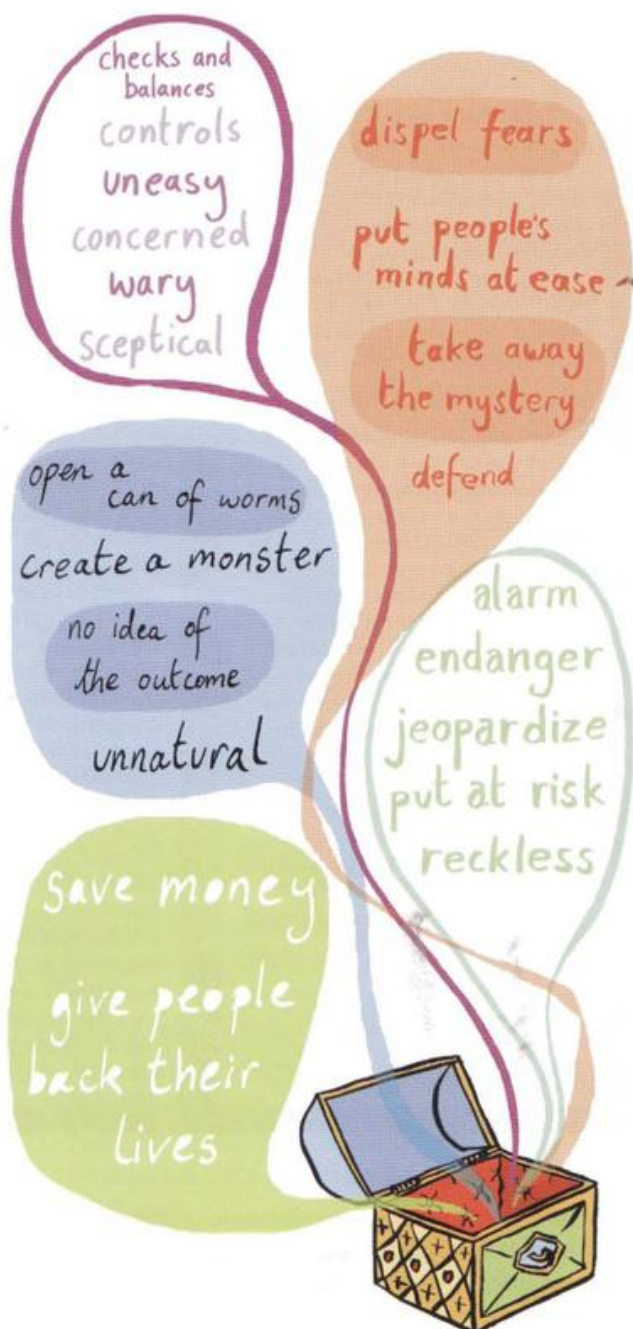 checks and
balances
controls
uneasy
concerned
wary
sceptical
dispel fears
put people's
minds at ease
take away
the mystery
defend
open a
can of worms
create a monster
no idea of
the outcome
unnatural
alarm
endanger
jeopardize
put at risk
reckless
save money
give people
back their
lives